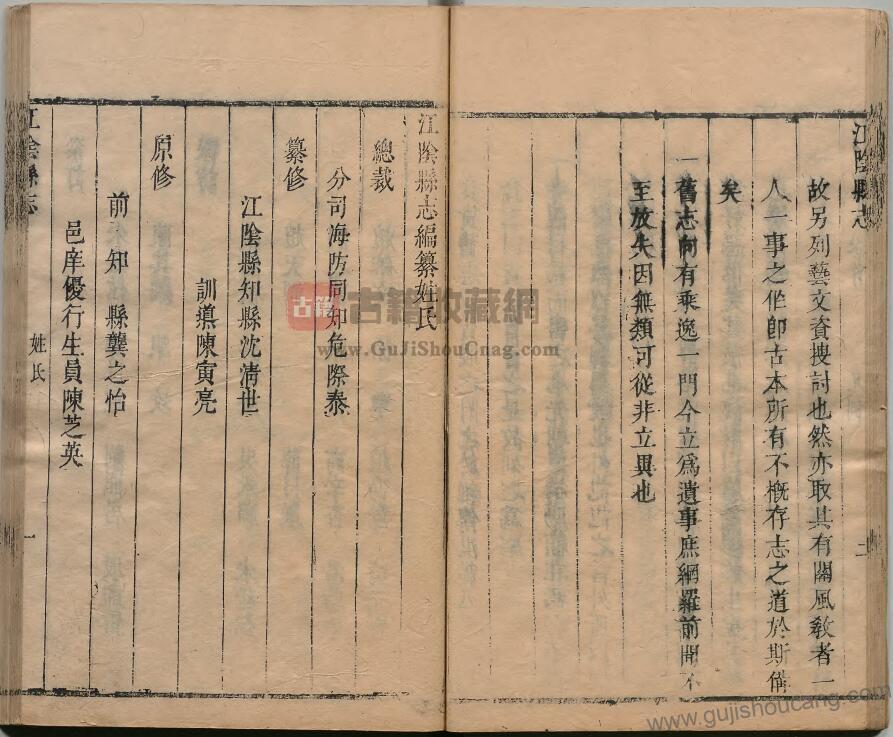 江陰縣志
二
故另列藝文資搜討也然亦取其有關風敎者一
人一事之作郎古本所有不槪存志之道於斯備
矣
一舊志向有乘逸一門今立爲遺事庶網羅前聞不
至放失因無類可從非立異也
江陰縣志編纂姓氏
總裁
分司海防同知危際泰
纂修
江陰縣知縣沈淸世
訓導陳寅亮
原修
前知縣龔之怡
邑庠優行生員陳芝英
江陰縣志
姓氏
一
古籍
古籍收藏網
www.GuJiShouCnag.com
www.gujishoucang.com